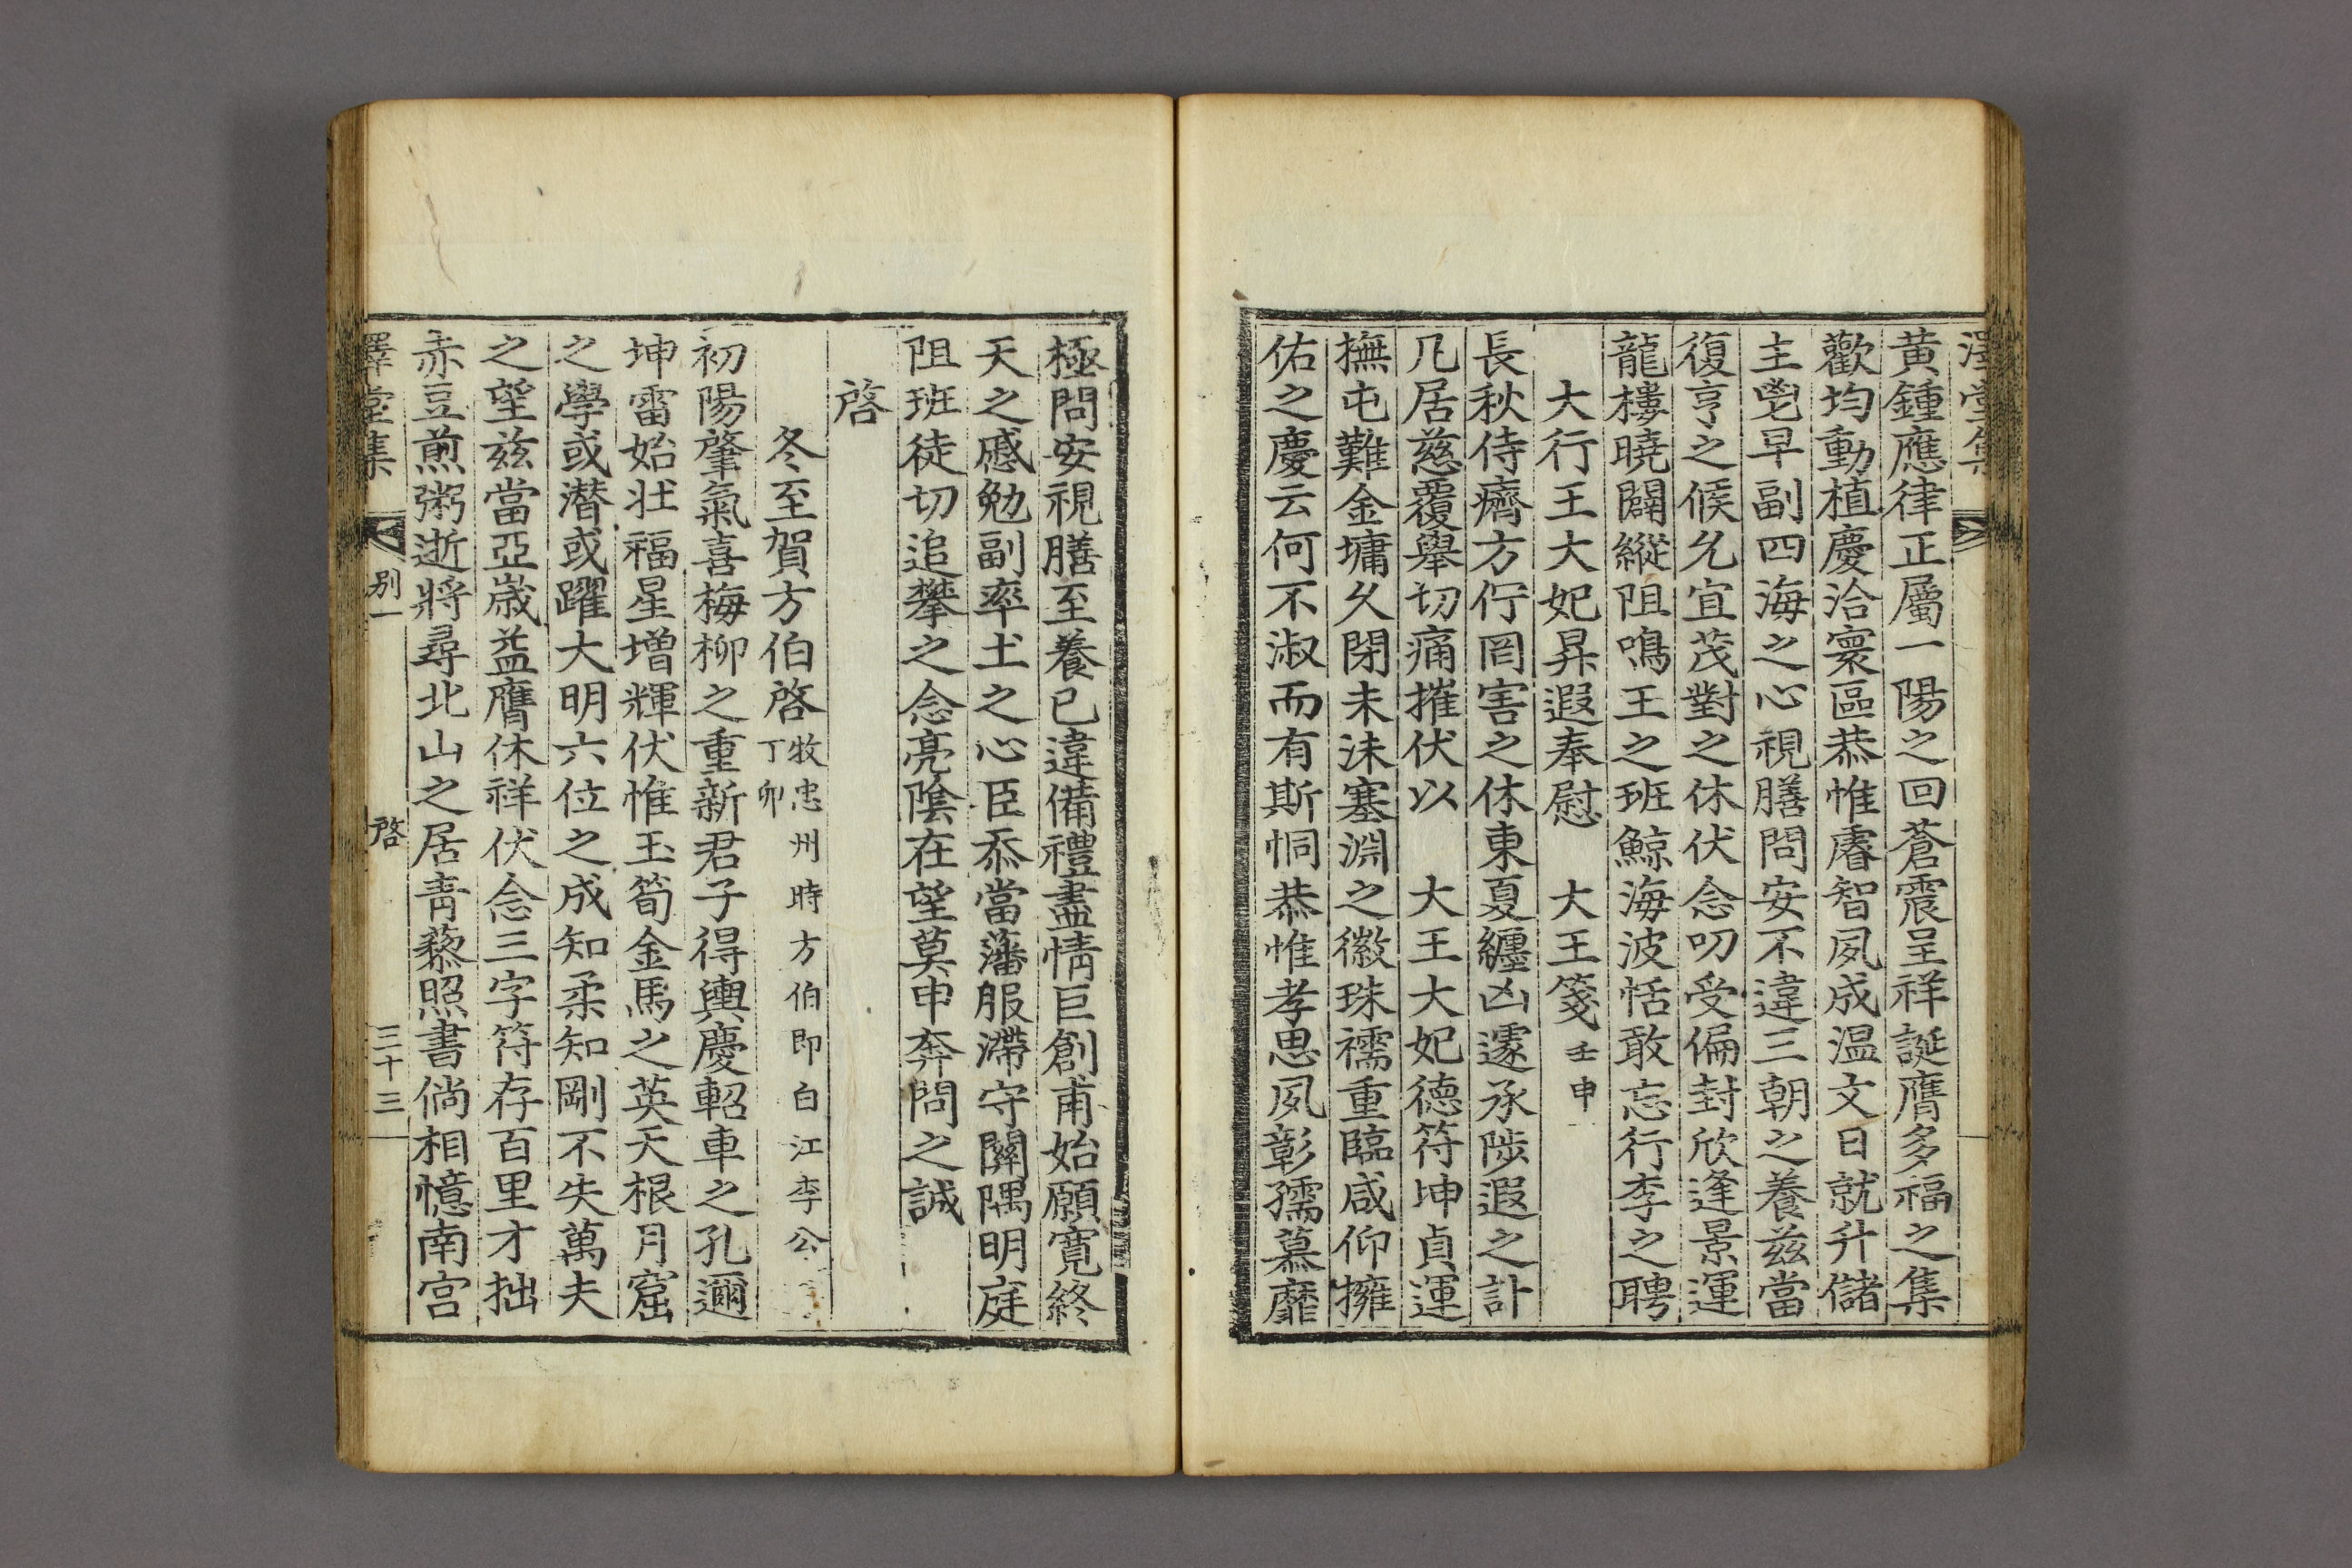 澤堂集
黄鍾應律正屬一陽之回蒼震呈祥誕膺多福之集
歡均動植慶洽寰區恭惟睿智夙成温文日就升儲
主鬯早副四海之心視膳問安不違三朝之養兹當
復亨之候允宜茂對之休伏念叨受偏封欣逢景運
龍樓曉闢縱阻鳴王之班鯨海波恬敢忘行李之聘
大行王大妃昇遐奉慰 大王箋壬申
長秋侍癠方佇罔害之休東夏纏凶遽承陟遐之訃
凡居慈覆舉切痛摧伏以 大王大妃德符坤貞運
撫屯難金墉久閉未沬塞淵之徽珠襦重臨咸仰擁
佑之慶云何不淑而有斯恫恭惟孝思夙彰孺慕靡
極問安視膳至養已違備禮盡情巨創甫始願寛終
天之慼勉副率土之心臣忝當藩服滯守關隅明庭
阻班徒切追攀之念亮陰在望莫申奔問之誠
啓
冬至賀方伯啓牧忠州時方伯即白江李公
丁卯
初陽肇氣喜梅柳之重新君子得輿慶軺車之孔邇
坤雷始壮福星増輝伏惟玉筍金馬之英天根月窟
之學或潜或躍大明六位之成知柔知剛不失萬夫
之望兹當亞歳益膺休祥伏念三字符存百里才拙
赤豆煎粥逝將尋北山之居靑藜照書倘相憶南宫
澤堂集 別一 啓 三十三